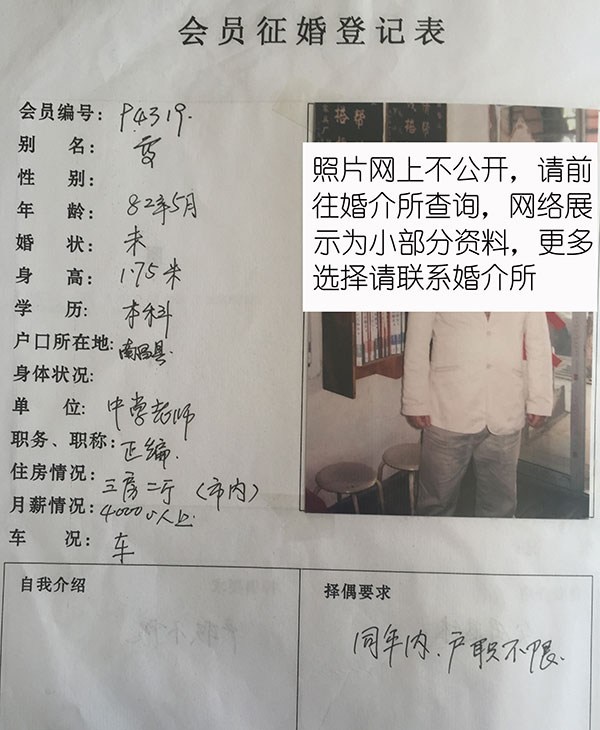 会员征婚登记表
会员编号: P4319.
别 名:
性 别:
年 龄: 82年5月
婚 状: 未
身 高: 1.75米
学 历: 本科
户口所在地: 南昌县.
身体状况:
单 位: 中学老师
职务、职称: 正编.
住房情况: 三房二厅(市内)
月薪情况: 4000以上.
车 况: 车
照片网上不公开，请前
往婚介所查询，网络展
示为小部分资料，更多
选择请联系婚介所
自我介绍
择偶要求
同年内、户职不限.